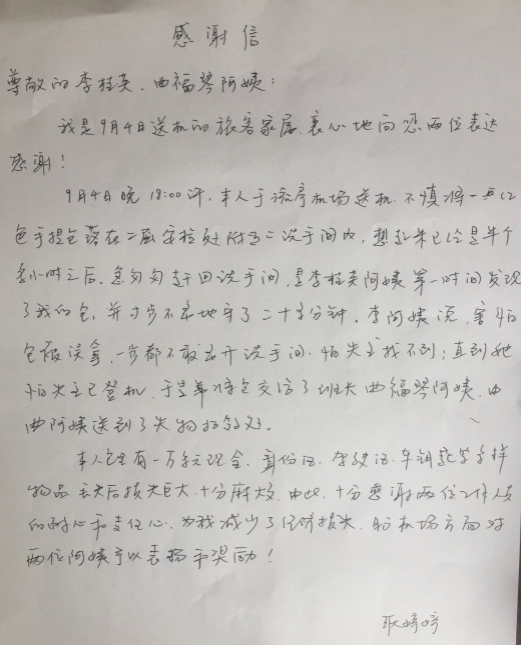 感谢信
尊敬的李桂英、曲福琴阿姨：
我是9月4日送机的旅客家属，衷心地向您两位表达
感谢！
9月4日晚18:00许，本人于流亭机场送机，不慎将一
包手提包落在二层安检处附近二洗手间内，想起来已经是半个
多小时之后。急匆匆赶回洗手间，是李桂英阿姨第一时间发现
了我的包，并寸步不离地守了二十多分钟。李阿姨说，害怕
包被误拿，一步都不敢离开洗手间，怕失主找不到；直到她
怕失主已登机，于是第将包交给了班长曲福琴阿姨，由
曲阿姨送到了失物招领处。
本人包里有一万多元现金、身份证、驾驶证、车钥匙等多样
物品，丢失后损失巨大，十分麻烦。由此，十分感谢两位工作人员
的耐心和责任心，为我减少了经济损失，盼机场方面对
两位阿姨予以表扬和奖励！
耿婷婷